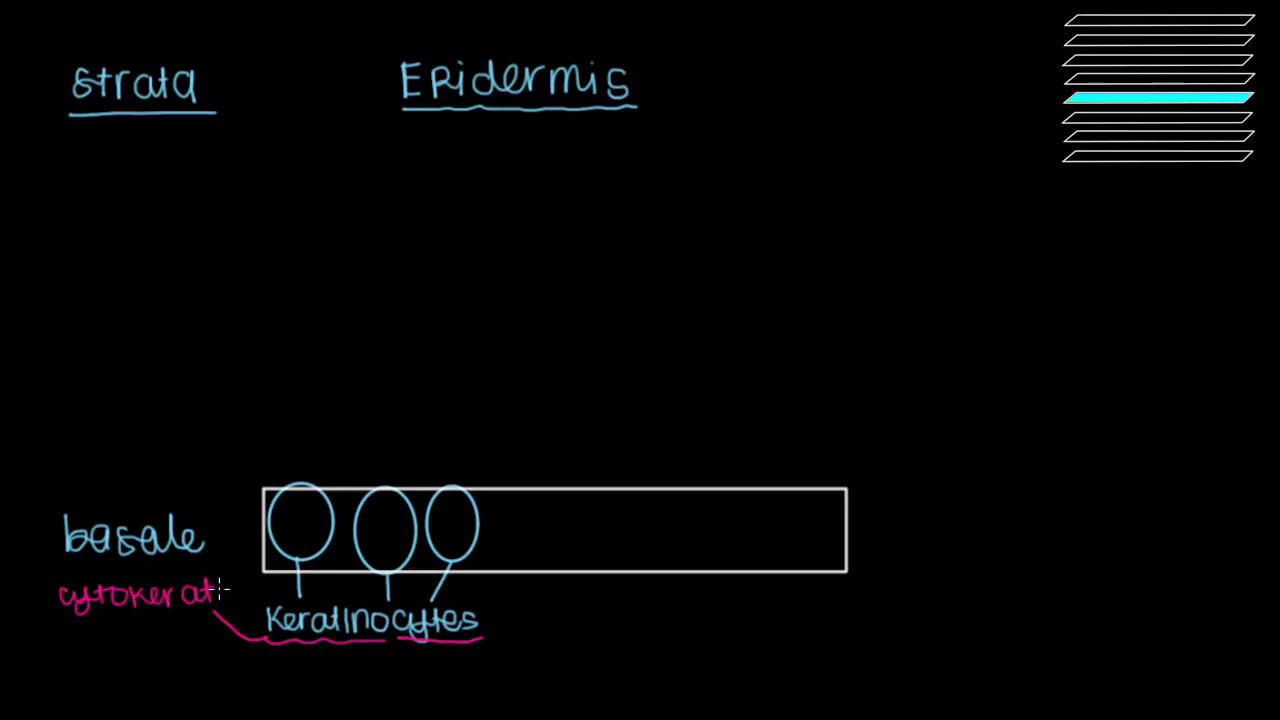 strata
Epidermis
basale
cytokerat
Keratinocytes